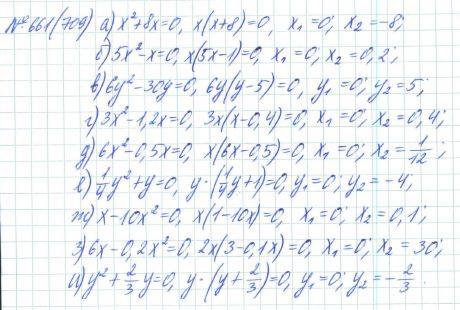 № 661(709) а) x²+8x=0, x(x+8)=0, x₁=0; x₂=-8;
б) 5x²-x=0, x(5x-1)=0, x₁=0; x₂=0,2;
в) 6y²-30y=0, 6y(y-5)=0, y₁=0; y₂=5;
г) 3x²-1,2x=0, 3x(x-0,4)=0, x₁=0; x₂=0,4;
д) 6x²-0,5x=0, x(6x-0,5)=0, x₁=0; x₂=1/12;
е) 1/4y²+y=0, y·(1/4y+1)=0, y₁=0; y₂=-4;
ж) x-10x²=0, x(1-10x)=0, x₁=0; x₂=0,1;
з) 6x-0,2x²=0, 2x(3-0,1x)=0, x₁=0; x₂=30;
и) y²+2/3y=0, y·(y+2/3)=0, y₁=0; y₂=-2/3.